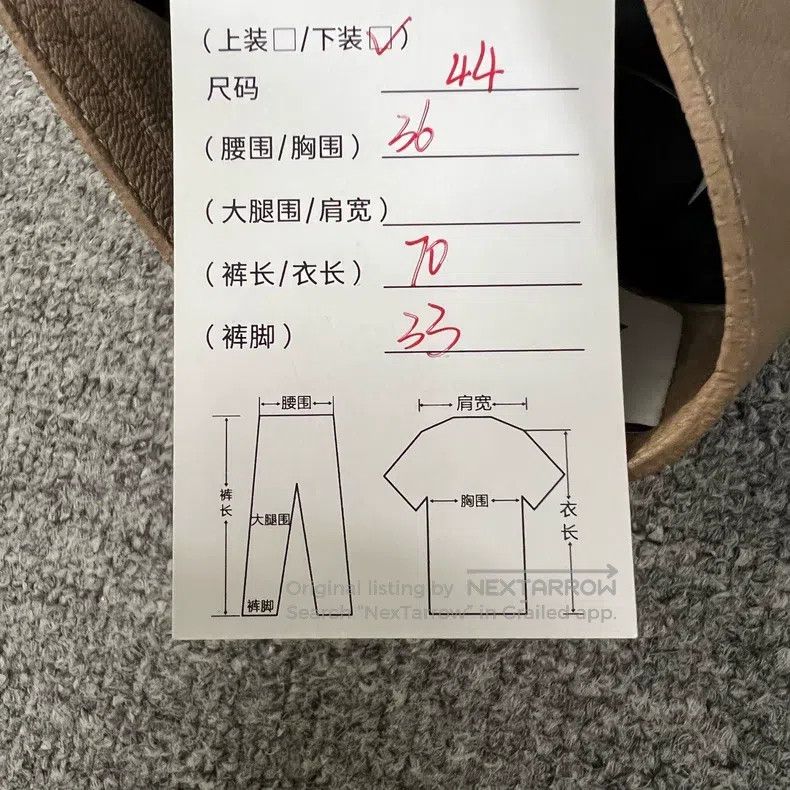 (上装□/下装☑)
尺码 44
(腰围/胸围) 36
(大腿围/肩宽)
(裤长/衣长) 70
(裤脚) 33
腰围
肩宽
裤长
大腿围
胸围
衣长
裤脚
Original listing by NEXTARROW
Search "NexTarrow" in Grailed app.